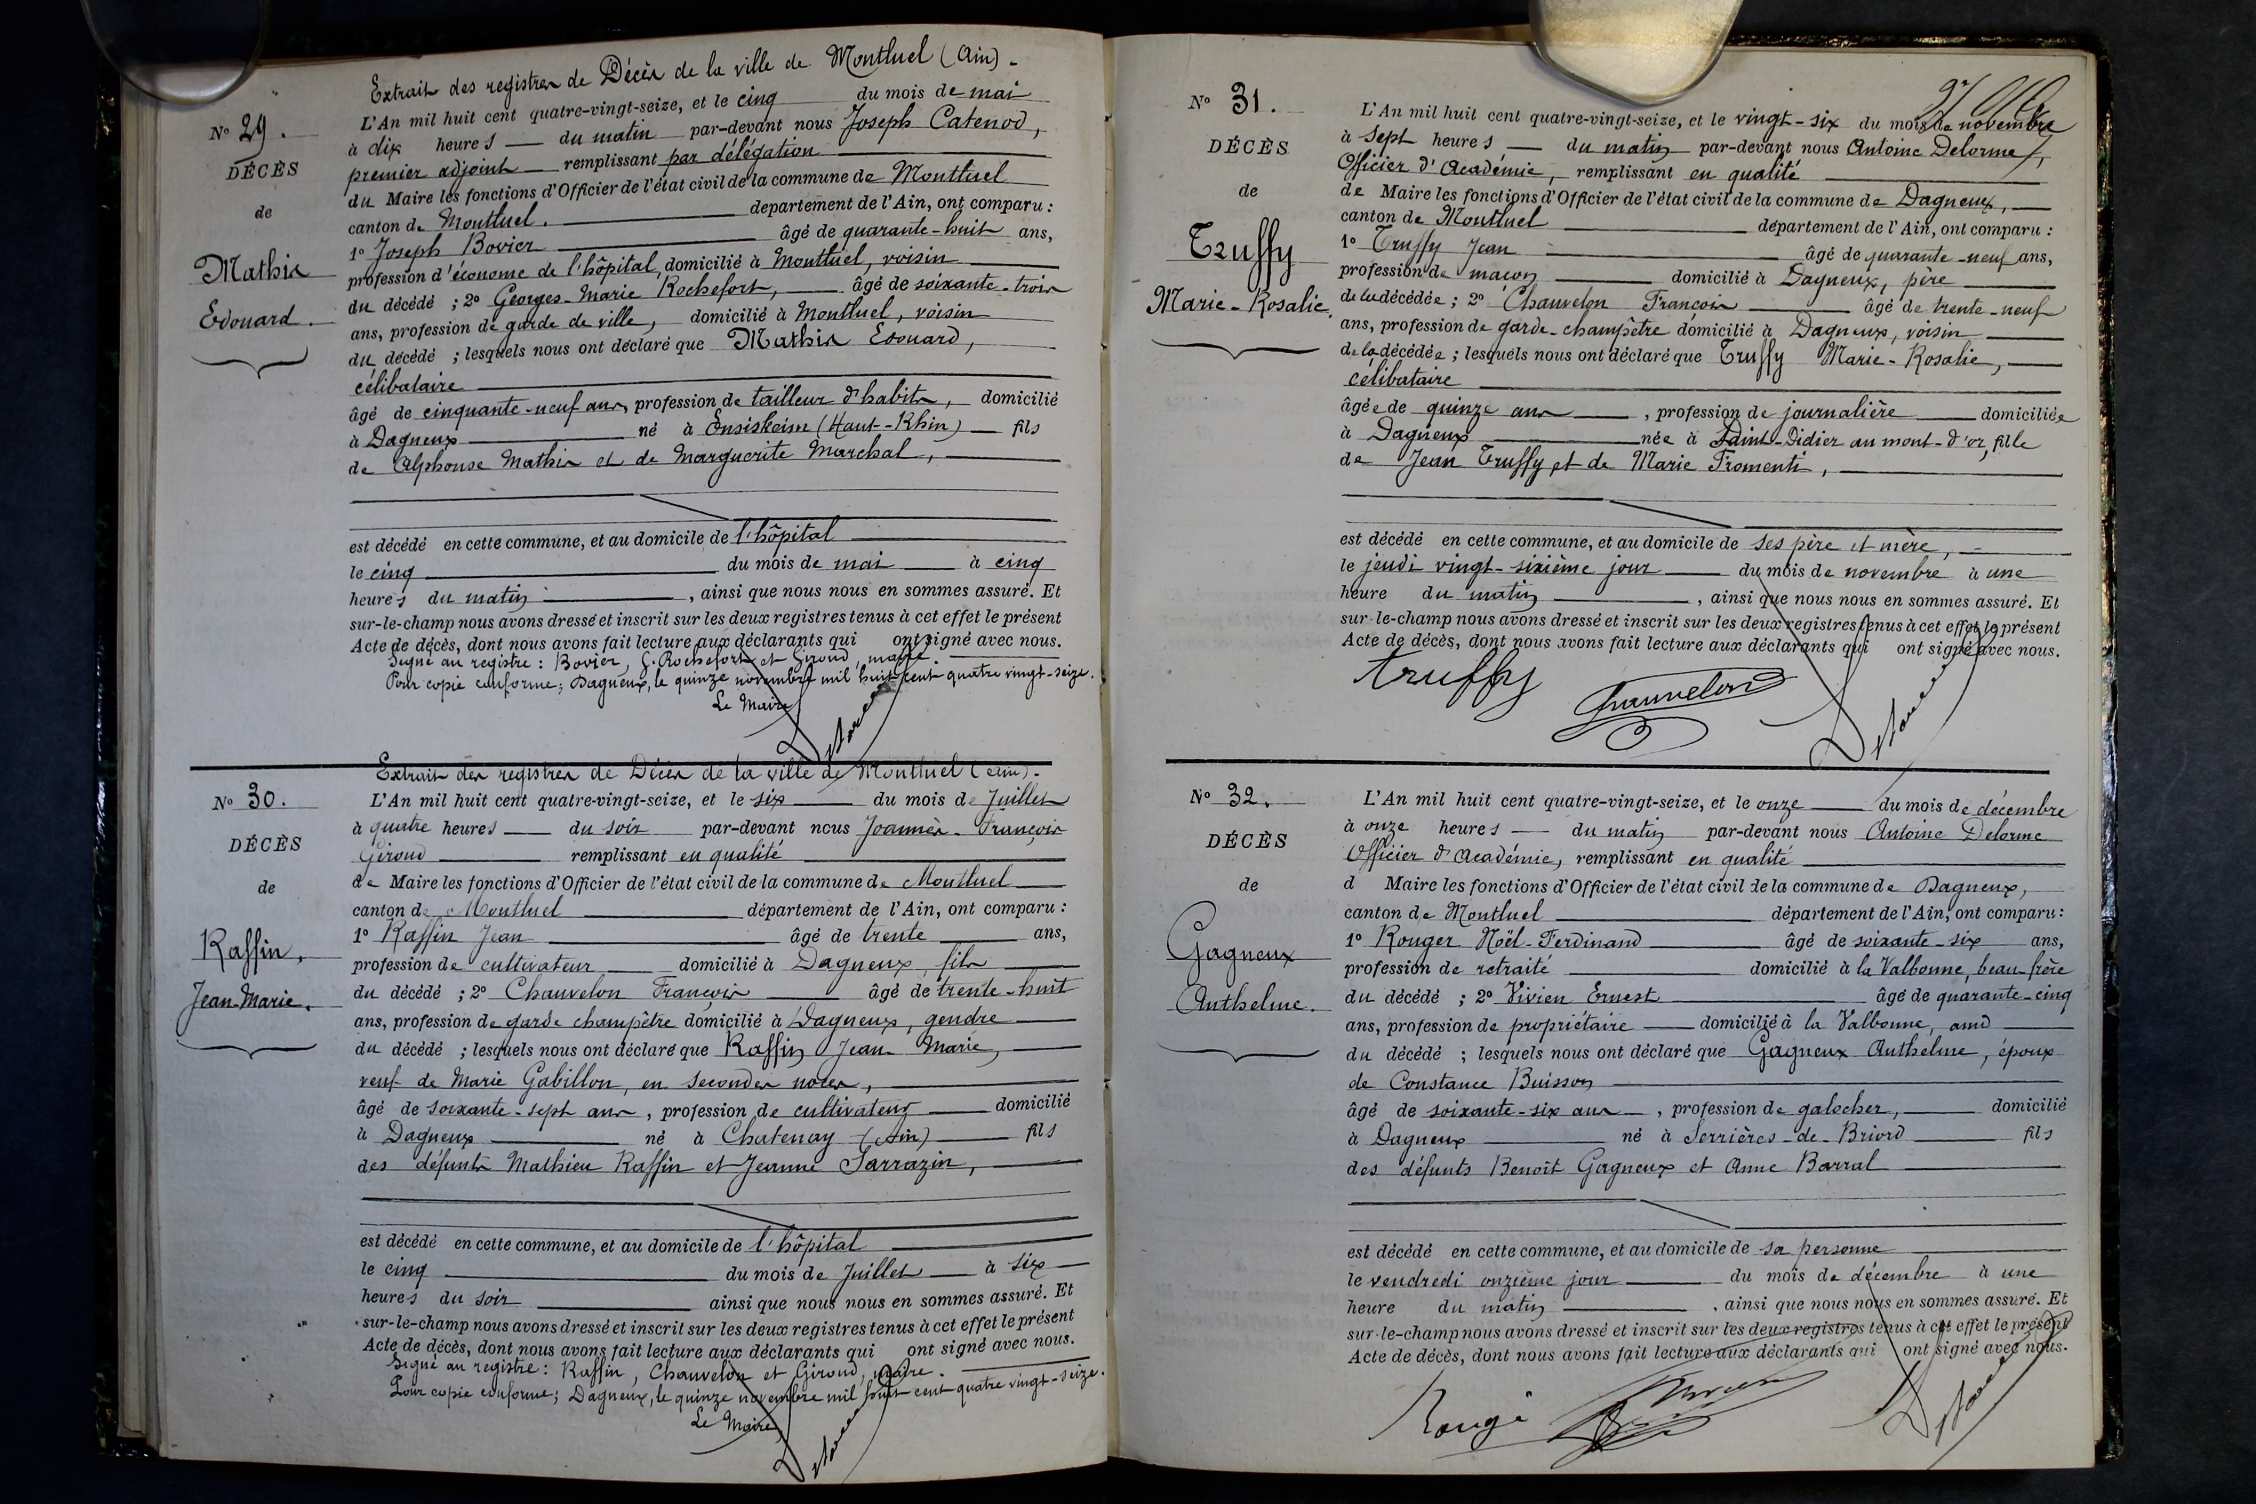 Extrait des registres de Décès de la ville de Montluel (Ain).
N° 29.
DÉCÈS
de
Mathis
Edouard.
L'An mil huit cent quatre-vingt-seize, et le cinq du mois de mai
à dix heures du matin par-devant nous Joseph Catenod,
premier adjoint remplissant par délégation
du Maire les fonctions d'Officier de l'état civil de la commune de Montluel
canton de Montluel. département de l'Ain, ont comparu :
1° Joseph Bovier âgé de quarante-huit ans,
profession d'économe de l'hôpital, domicilié à Montluel, voisin
du décédé ; 2° Georges-Marie Rochefort, âgé de soixante-trois
ans, profession de garde de ville, domicilié à Montluel, voisin
du décédé ; lesquels nous ont déclaré que Mathis Edouard,
célibataire
âgé de cinquante-neuf ans, profession de tailleur d'habits, domicilié
à Dagneux né à Ensiskeim (Haut-Rhin) fils
de Alphonse Mathis et de Marguerite Marchal,
est décédé en cette commune, et au domicile de l'hôpital
le cinq du mois de mai à cinq
heures du matin , ainsi que nous nous en sommes assuré. Et
sur-le-champ nous avons dressé et inscrit sur les deux registres tenus à cet effet le présent
Acte de décès, dont nous avons fait lecture aux déclarants qui ont signé avec nous.
Signé au registre : Bovier, G. Rochefort et Giroud, maire.
Pour copie conforme; Dagneux, le quinze novembre mil huit cent quatre vingt-seize.
Le Maire
Delorme
Extrait des registres de Décès de la ville de Montluel (Ain).
N° 30.
DÉCÈS
de
Raffin,
Jean-Marie.
L'An mil huit cent quatre-vingt-seize, et le six du mois de Juillet
à quatre heures du soir par-devant nous Joannès-François
Giroud remplissant en qualité
de Maire les fonctions d'Officier de l'état civil de la commune de Montluel
canton de Montluel département de l'Ain, ont comparu :
1° Raffin Jean âgé de trente ans,
profession de cultivateur domicilié à Dagneux, fils
du décédé ; 2° Chauvelon François âgé de trente-huit
ans, profession de garde champêtre domicilié à Dagneux, gendre
du décédé ; lesquels nous ont déclaré que Raffin Jean-Marie,
veuf de Marie Gabillon, en secondes noces,
âgé de soixante-sept ans, profession de cultivateur domicilié
à Dagneux né à Chatenay (Ain) fils
des défunts Mathieu Raffin et Jeanne Sarrazin,
est décédé en cette commune, et au domicile de l'hôpital
le cinq du mois de Juillet à six
heures du soir ainsi que nous nous en sommes assuré. Et
sur-le-champ nous avons dressé et inscrit sur les deux registres tenus à cet effet le présent
Acte de décès, dont nous avons fait lecture aux déclarants qui ont signé avec nous.
Signé au registre : Raffin, Chauvelon et Giroud, maire.
Pour copie conforme; Dagneux, le quinze novembre mil huit cent quatre vingt-seize.
Le Maire
Delorme
N° 31.
DÉCÈS
de
Truffy
Marie-Rosalie,
L'An mil huit cent quatre-vingt-seize, et le vingt-six du mois de novembre
à sept heures du matin par-devant nous Antoine Delorme,
Officier d'Académie, remplissant en qualité
de Maire les fonctions d'Officier de l'état civil de la commune de Dagneux,
canton de Montluel département de l'Ain, ont comparu :
1° Truffy Jean âgé de quarante-neuf ans,
profession de maçon domicilié à Dagneux, père
de la décédée ; 2° Chauvelon François âgé de trente-neuf
ans, profession de garde-champêtre domicilié à Dagneux, voisin
de la décédée ; lesquels nous ont déclaré que Truffy Marie-Rosalie,
célibataire
âgée de quinze ans , profession de journalière domiciliée
à Dagneux née à Saint-Didier au mont-d'or, fille
de Jean Truffy et de Marie Fromenti,
est décédé en cette commune, et au domicile de ses père et mère,
le jeudi vingt-sixième jour du mois de novembre à une
heure du matin , ainsi que nous nous en sommes assuré. Et
sur-le-champ nous avons dressé et inscrit sur les deux registres tenus à cet effet le présent
Acte de décès, dont nous avons fait lecture aux déclarants qui ont signé avec nous.
truffy
Chauvelon
Delorme
N° 32.
DÉCÈS
de
Gagneux
Anthelme.
L'An mil huit cent quatre-vingt-seize, et le onze du mois de décembre
à onze heures du matin par-devant nous Antoine Delorme
Officier d'Académie, remplissant en qualité
d Maire les fonctions d'Officier de l'état civil de la commune de Dagneux,
canton de Montluel département de l'Ain, ont comparu :
1° Rouger Noël-Ferdinand âgé de soixante-six ans,
profession de retraité domicilié à la Valbonne, beau-frère
du décédé ; 2° Vivien Ernest âgé de quarante-cinq
ans, profession de propriétaire domicilié à la Valbonne, ami
du décédé ; lesquels nous ont déclaré que Gagneux Anthelme, époux
de Constance Buisson
âgé de soixante-six ans , profession de galocher, domicilié
à Dagneux né à Serrières-de-Briord fils
des défunts Benoît Gagneux et Anne Barral
est décédé en cette commune, et au domicile de sa personne
le vendredi onzième jour du mois de décembre à une
heure du matin , ainsi que nous nous en sommes assuré. Et
sur-le-champ nous avons dressé et inscrit sur les deux registres tenus à cet effet le présent
Acte de décès, dont nous avons fait lecture aux déclarants qui ont signé avec nous.
Rougé
Delorme